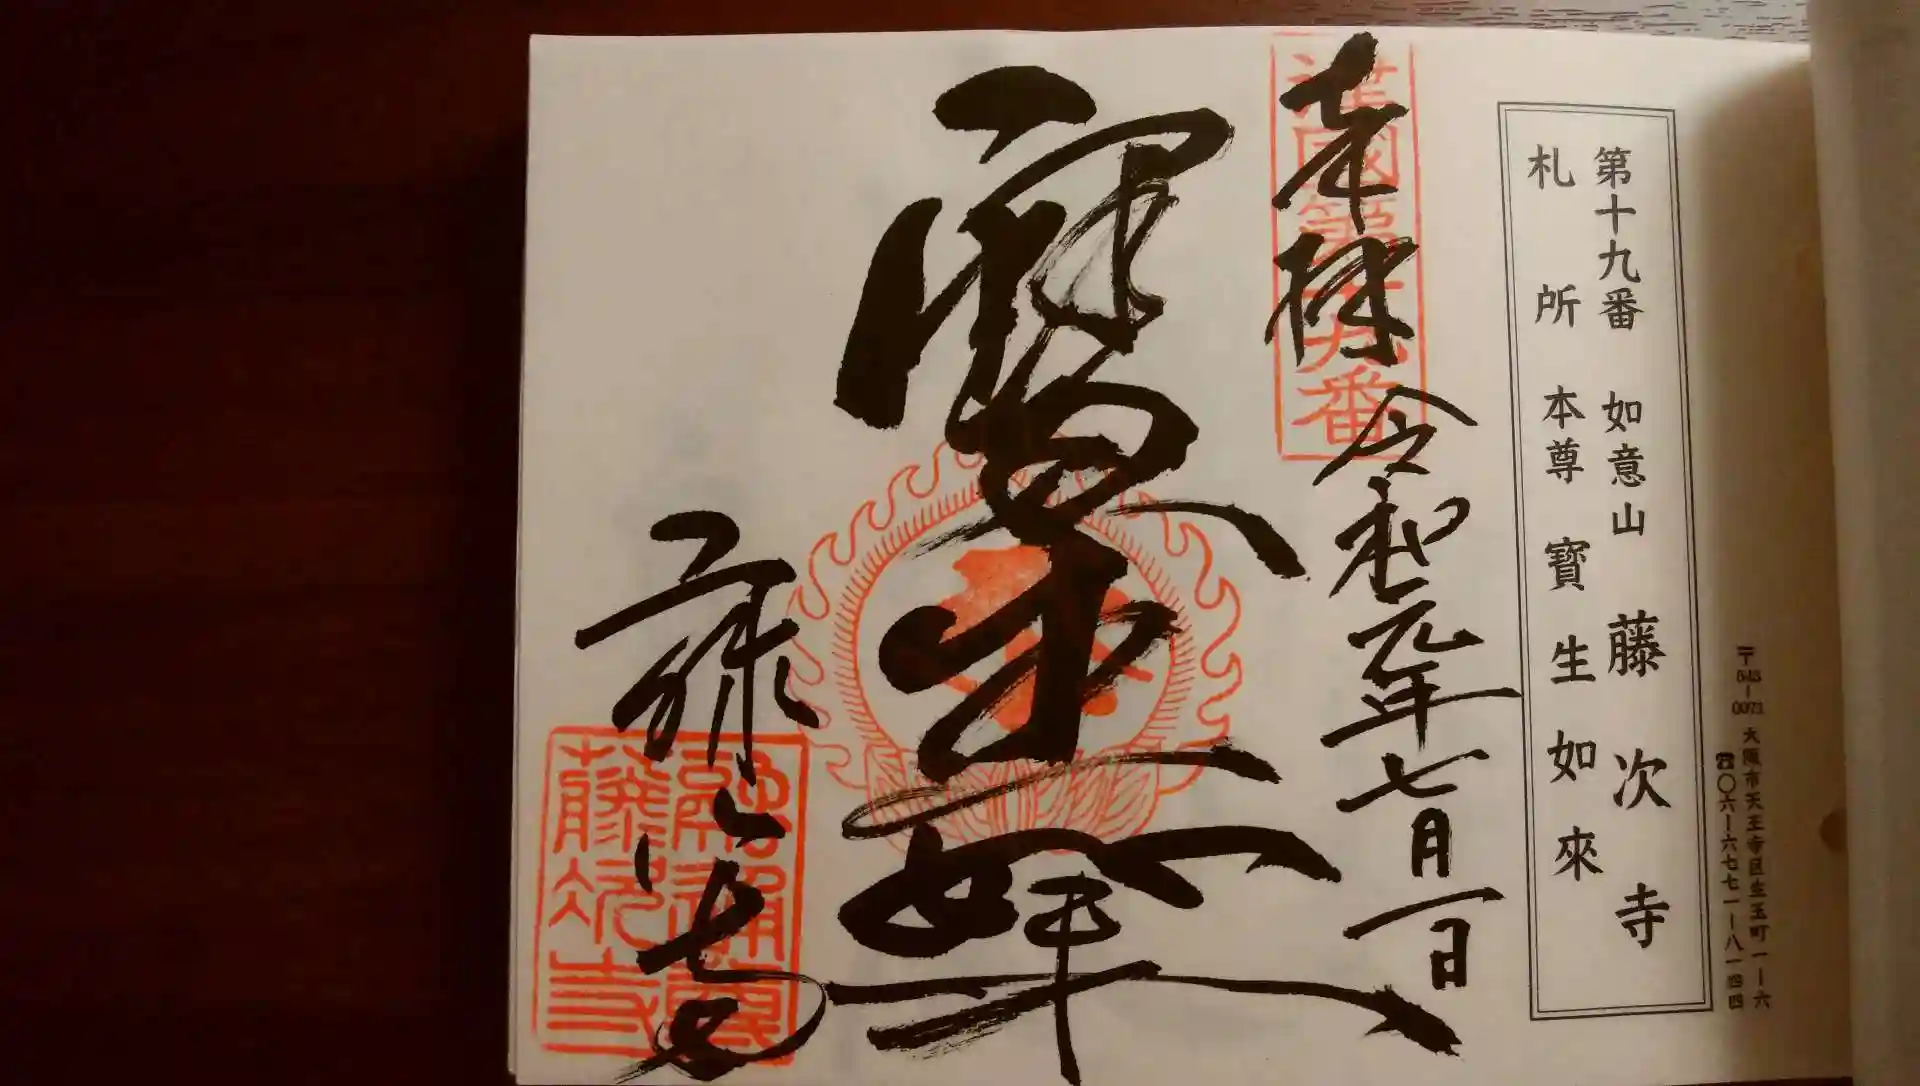 〒543-0071 大阪市天王寺区生玉町一ー六
☎〇六ー六七七一ー八一四四
第十九番 如意山 藤次寺
札所 本尊 寶生如來
奉拝 令和元年七月一日
寶生如来
藤次寺
第十九番